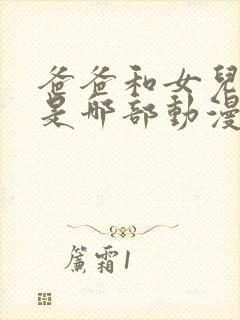 爸爸和女兒
是哪部動漫
簾霜1